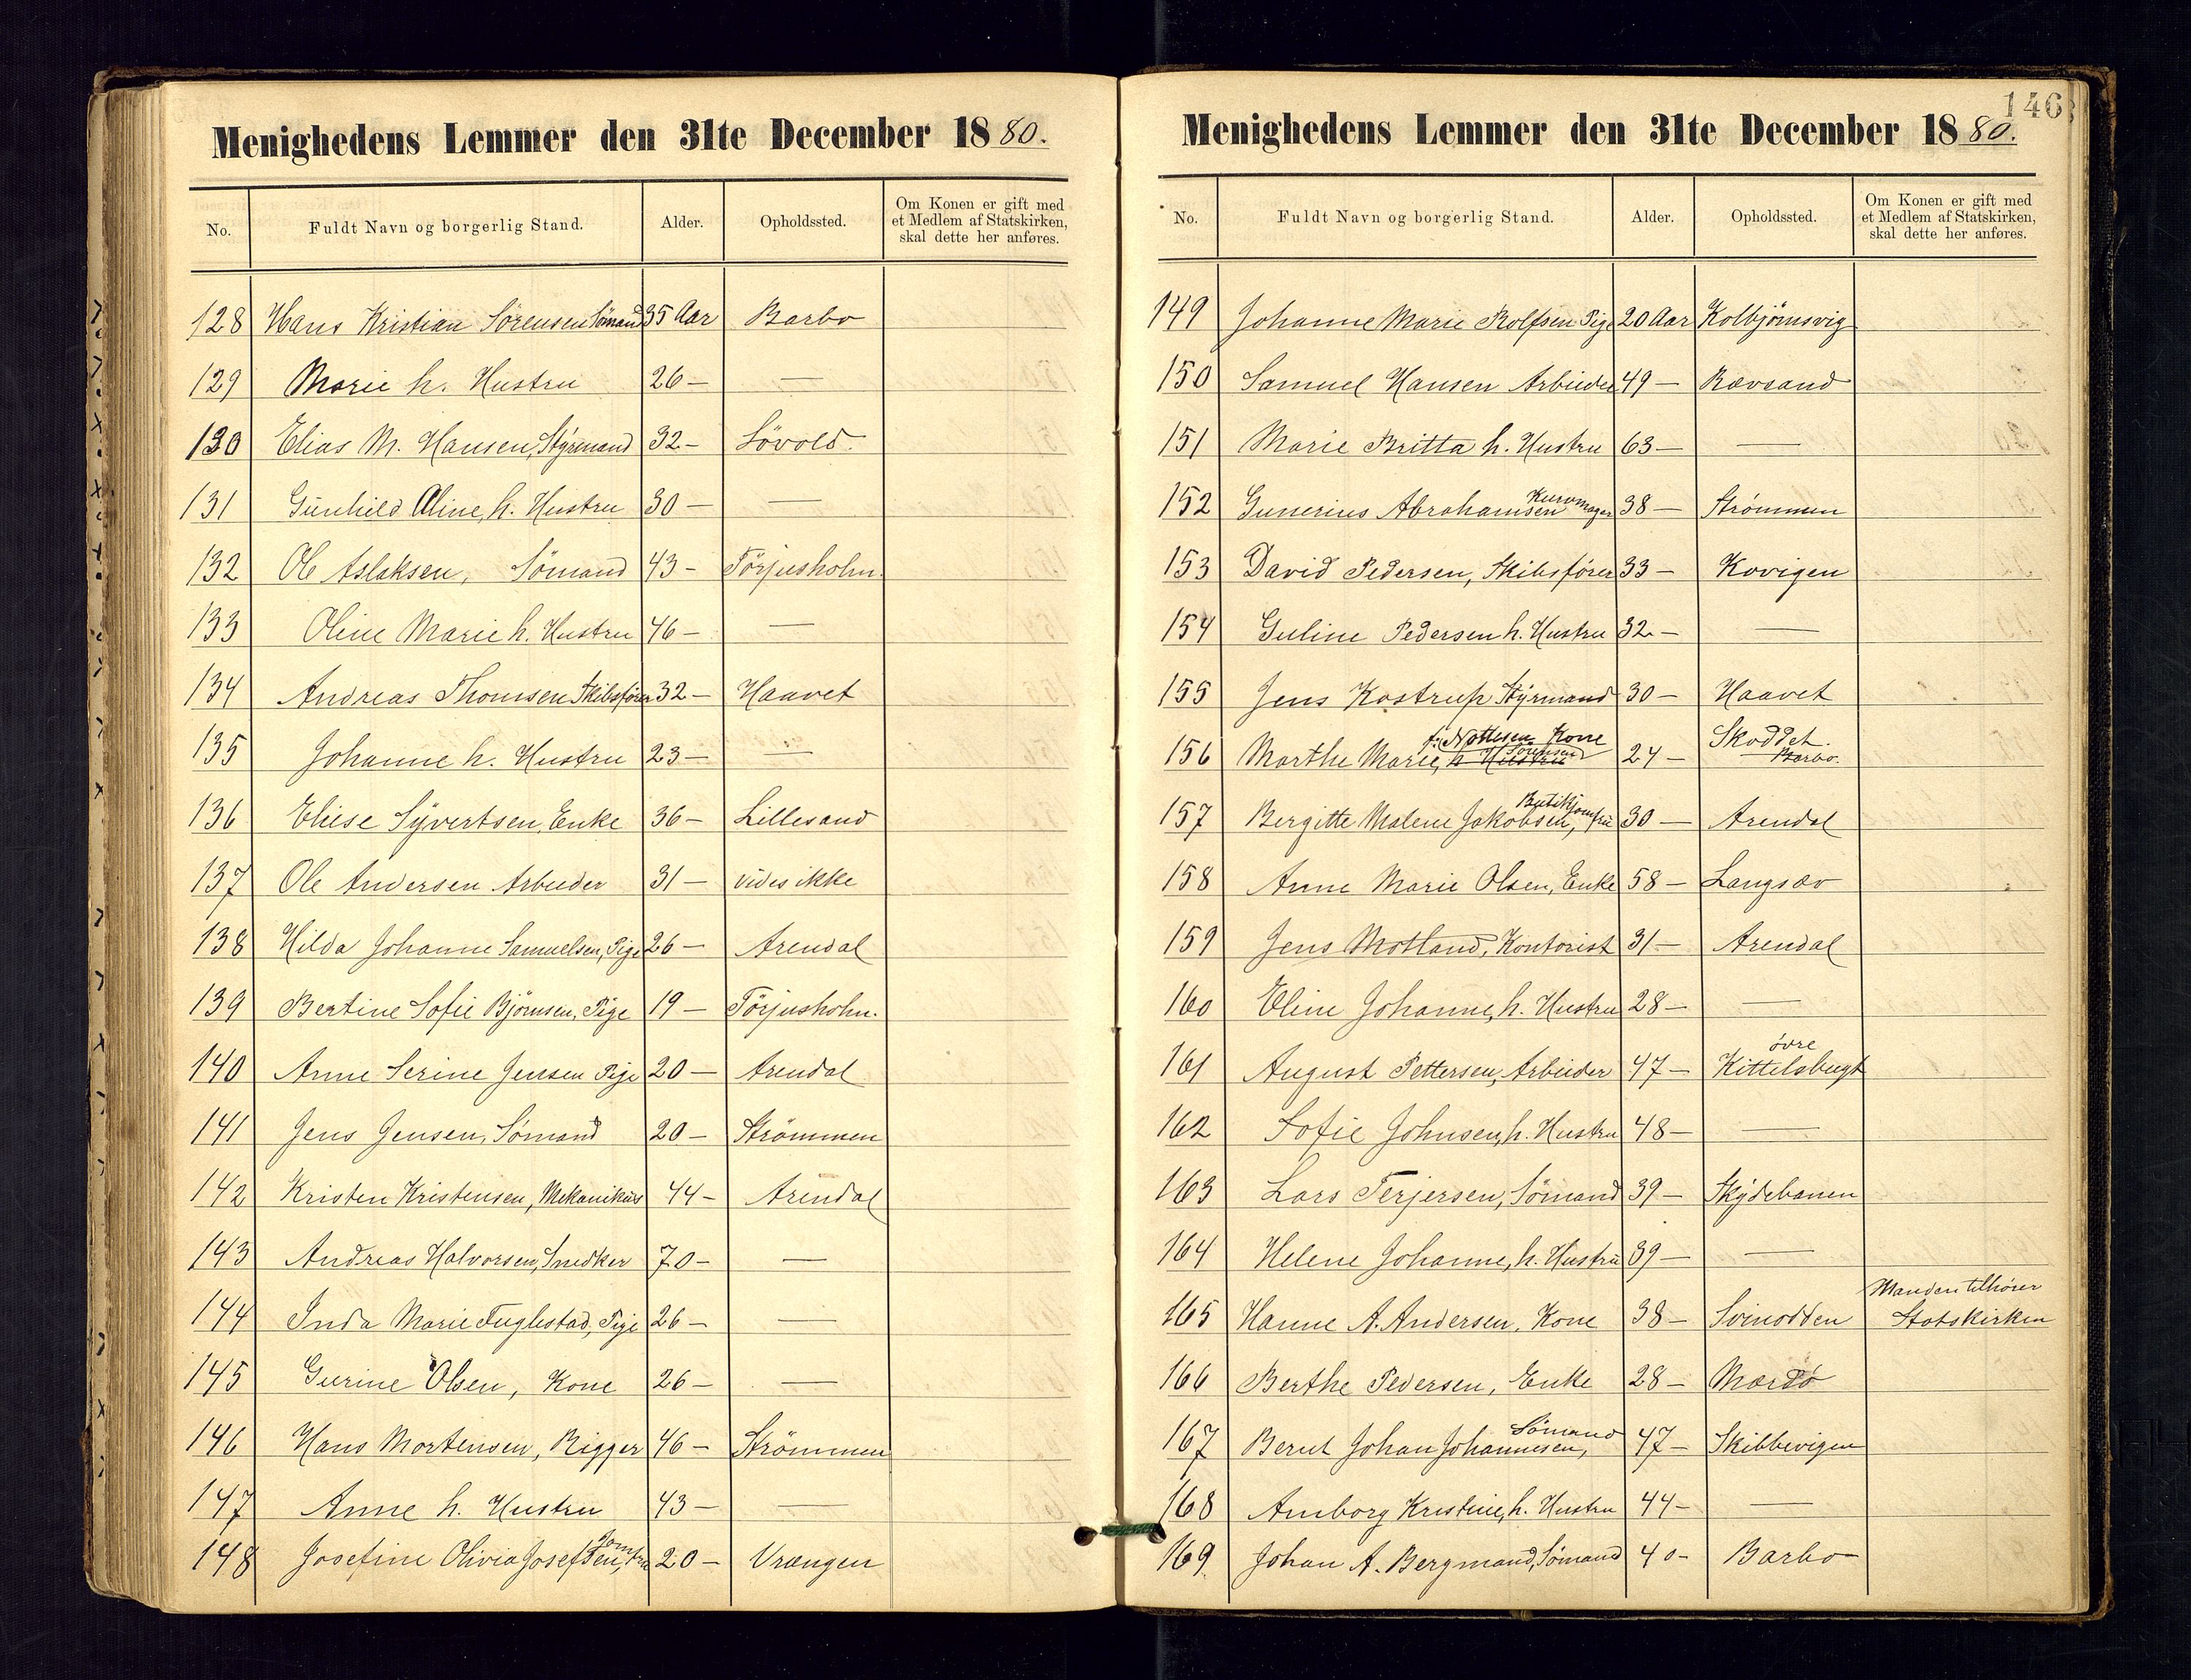 Menighedens Lemmer den 31te December 1880.
No. Fuldt Navn og borgerlig Stand. Alder. Opholdssted. Om Konen er gift med et Medlem af Statskirken, skal dette her anføres.
128 Hans Kristian Sörensen Sömand 35 Aar Barbo
129 Marie h. Hustru 26 — —
130 Elias M. Hansen, Styrmand 32 — Lövold.
131 Gunhild Oline, h. Hustru 30 — —
132 Ole Aslaksen, Sömand 43 — Törjusholm.
133 Oline Marie h. Hustru 46 — —
134 Andreas Thomsen Skibsfører 32 — Haavet
135 Johanne h. Hustru 23 — —
136 Eliese Syvertsen, Enke 36 — Lillesand
137 Ole Andersen Arbeider 31 — vides ikke
138 Hilda Johanne Samuelsen, Pige 26 — Arendal
139 Bertine Sofie Björnsen, Pige 19 — Törjusholm.
140 Anne Serine Jensen Pige 20 — Arendal
141 Jens Jensen, Sömand 20 — Strömmen
142 Kristen Kristensen, Mekanikus 44 — Arendal
143 Andreas Halvorsen, Snedker 70 — —
144 Inda Marie Fuglestad, Pige 26 — —
145 Gurine Olsen, Kone 26 — —
146 Hans Mortensen, Rigger 46 — Strömmen
147 Anne h. Hustru 43 — —
148 Josefine Olivia Josefsen, Jomfru 20 — Vrængen
146
Menighedens Lemmer den 31te December 1880.
No. Fuldt Navn og borgerlig Stand. Alder. Opholdssted. Om Konen er gift med et Medlem af Statskirken, skal dette her anføres.
149 Johanne Marie Rolfsen Pige 20 Aar Kolbjörnsvig
150 Samuel Hansen Arbeider 49 — Rævesand
151 Marie Britta h. Hustru 63 — —
152 Gunerius Abrahamsen Kurvmager 38 — Strømmen
153 David Pedersen, Skibsfører 33 — Kovigen
154 Guline Pedersen h. Hustru 32 — —
155 Jens Kostrup Styrmand 30 — Haavet
156 Marthe Marie, h. Hustru Sörensen Kone 24 — Skoddet. Barbo.
157 Bergitte Malene Jakobsen, Butikjomfru 30 — Arendal
158 Anne Marie Olsen, Enke 58 — Langsæv
159 Jens Motland, Kontorist 31 — Arendal
160 Eline Johanne, h. Hustru 28 — —
161 August Pettersen, Arbeider 47 — øvre Kittelsbugt
162 Sofie Johnsen, h. Hustru 48 — —
163 Lars Terjersen, Sömand 39 — Skydebanen
164 Helene Johanne, h. Hustru 39 — —
165 Hanne A. Andersen, Kone 38 — Svinodden Manden tilhører Statskirken
166 Berthe Pedersen, Enke 28 — Mærdø
167 Bernt Johan Johannesen, Sömand 47 — Skibbevigen
168 Amborg Kristine, h. Hustru 44 — —
169 Johan A. Bergmand, Sömand 40 — Barbo